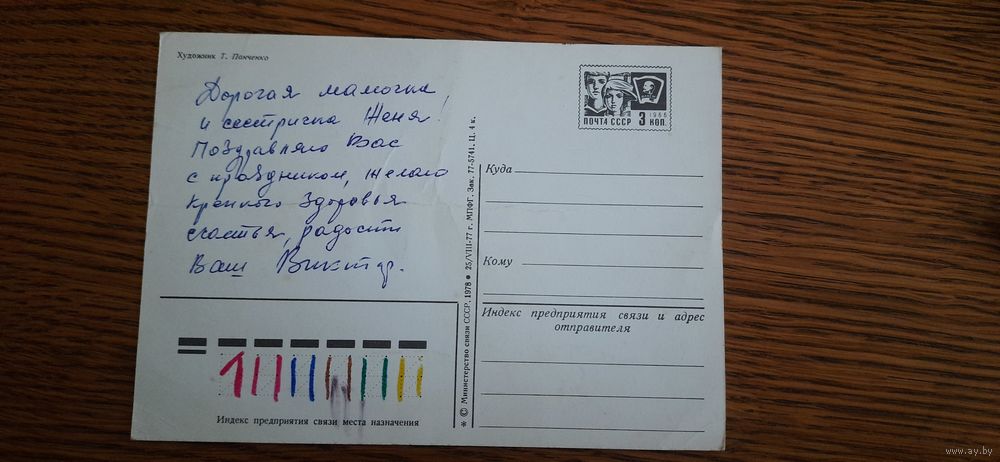 Художник Т. Панченко
Дорогая мамочка
и сестричка Женя!
Поздравляю Вас
с праздником, желаю
крепкого здоровья
счастья, радости
Ваш Виктор.
ПОЧТА СССР
3 1966 КОП.
Куда
Кому
Индекс предприятия связи и адрес
отправителя
* © Министерство связи СССР. 1978 ● 25/VIII-77 г. МПФГ. Зак. 77-5741. Ц. 4 к.
Индекс предприятия связи места назначения
www.ay.by